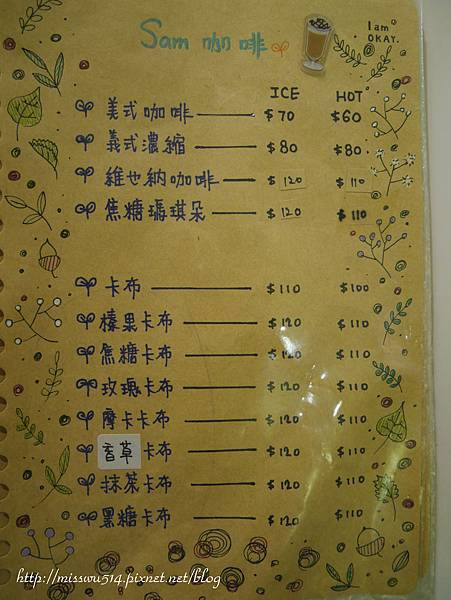 Sam 咖啡
I am
OKAY.
ICE HOT
美式咖啡 $70 $60
義式濃縮 $80 $80
維也納咖啡 $120 $110
焦糖瑪琪朵 $120 $110
卡布 $110 $100
榛果卡布 $120 $110
焦糖卡布 $120 $110
玫瑰卡布 $120 $110
摩卡卡布 $120 $110
香草卡布 $120 $110
抹茶卡布 $120 $110
黑糖卡布 $120 $110
http://misswu514.pixnet.net/blog